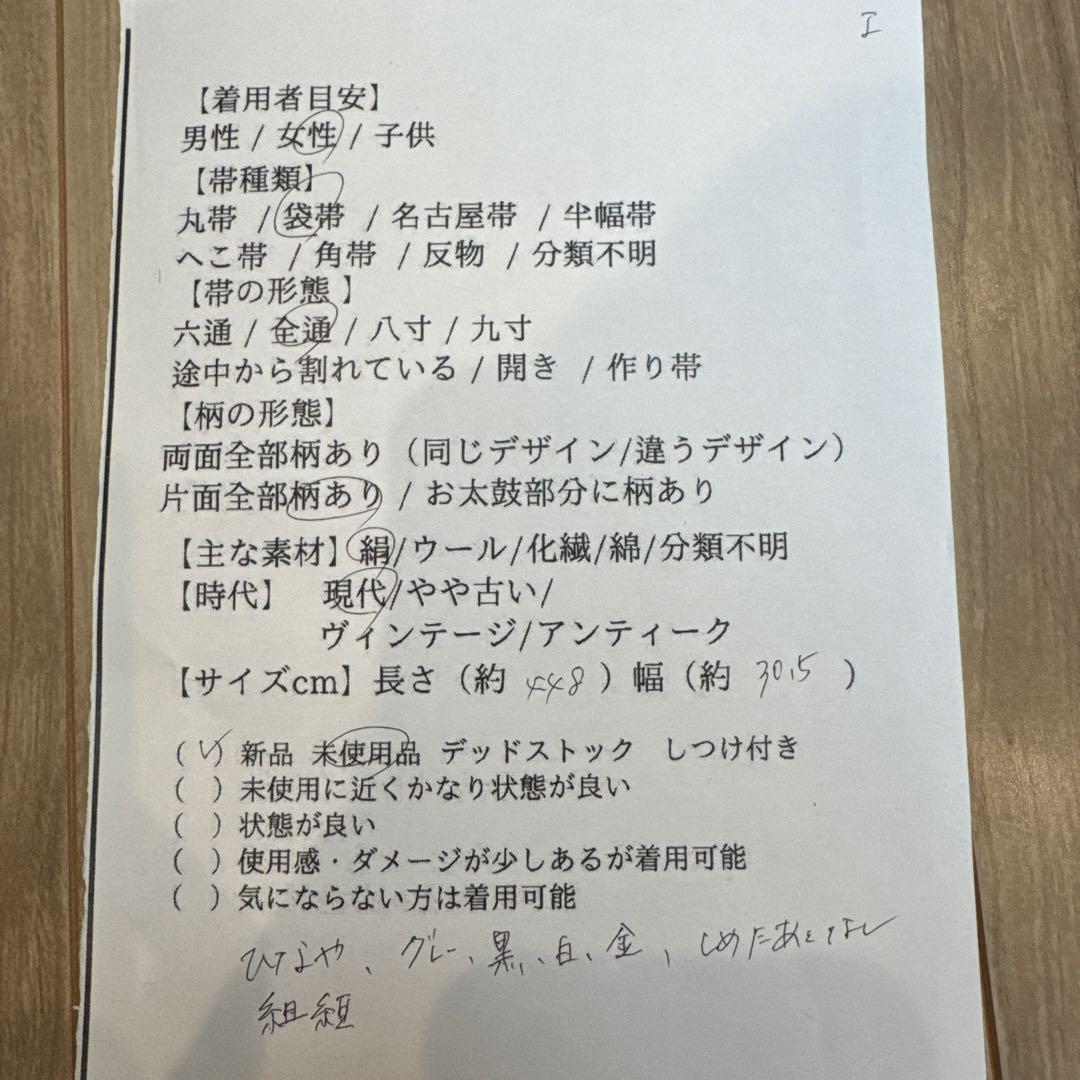 エ
【着用者目安】
男性 / 女性 / 子供
【帯種類】
丸帯 / 袋帯 / 名古屋帯 / 半幅帯
へこ帯 / 角帯 / 反物 / 分類不明
【帯の形態 】
六通 / 全通 / 八寸 / 九寸
途中から割れている / 開き / 作り帯
【柄の形態】
両面全部柄あり（同じデザイン/違うデザイン）
片面全部柄あり / お太鼓部分に柄あり
【主な素材】絹/ウール/化繊/綿/分類不明
【時代】 現代/やや古い/
ヴィンテージ/アンティーク
【サイズcm】長さ（約 448 ）幅（約 30.5 ）
( ✓ ) 新品 未使用品 デッドストック しつけ付き
( ) 未使用に近くかなり状態が良い
( ) 状態が良い
( ) 使用感・ダメージが少しあるが着用可能
( ) 気にならない方は着用可能
ひなや、グレー、黒、白、金、しめたあとなし
組組